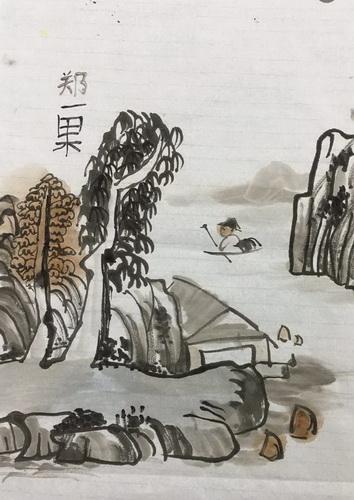 郑
一
果